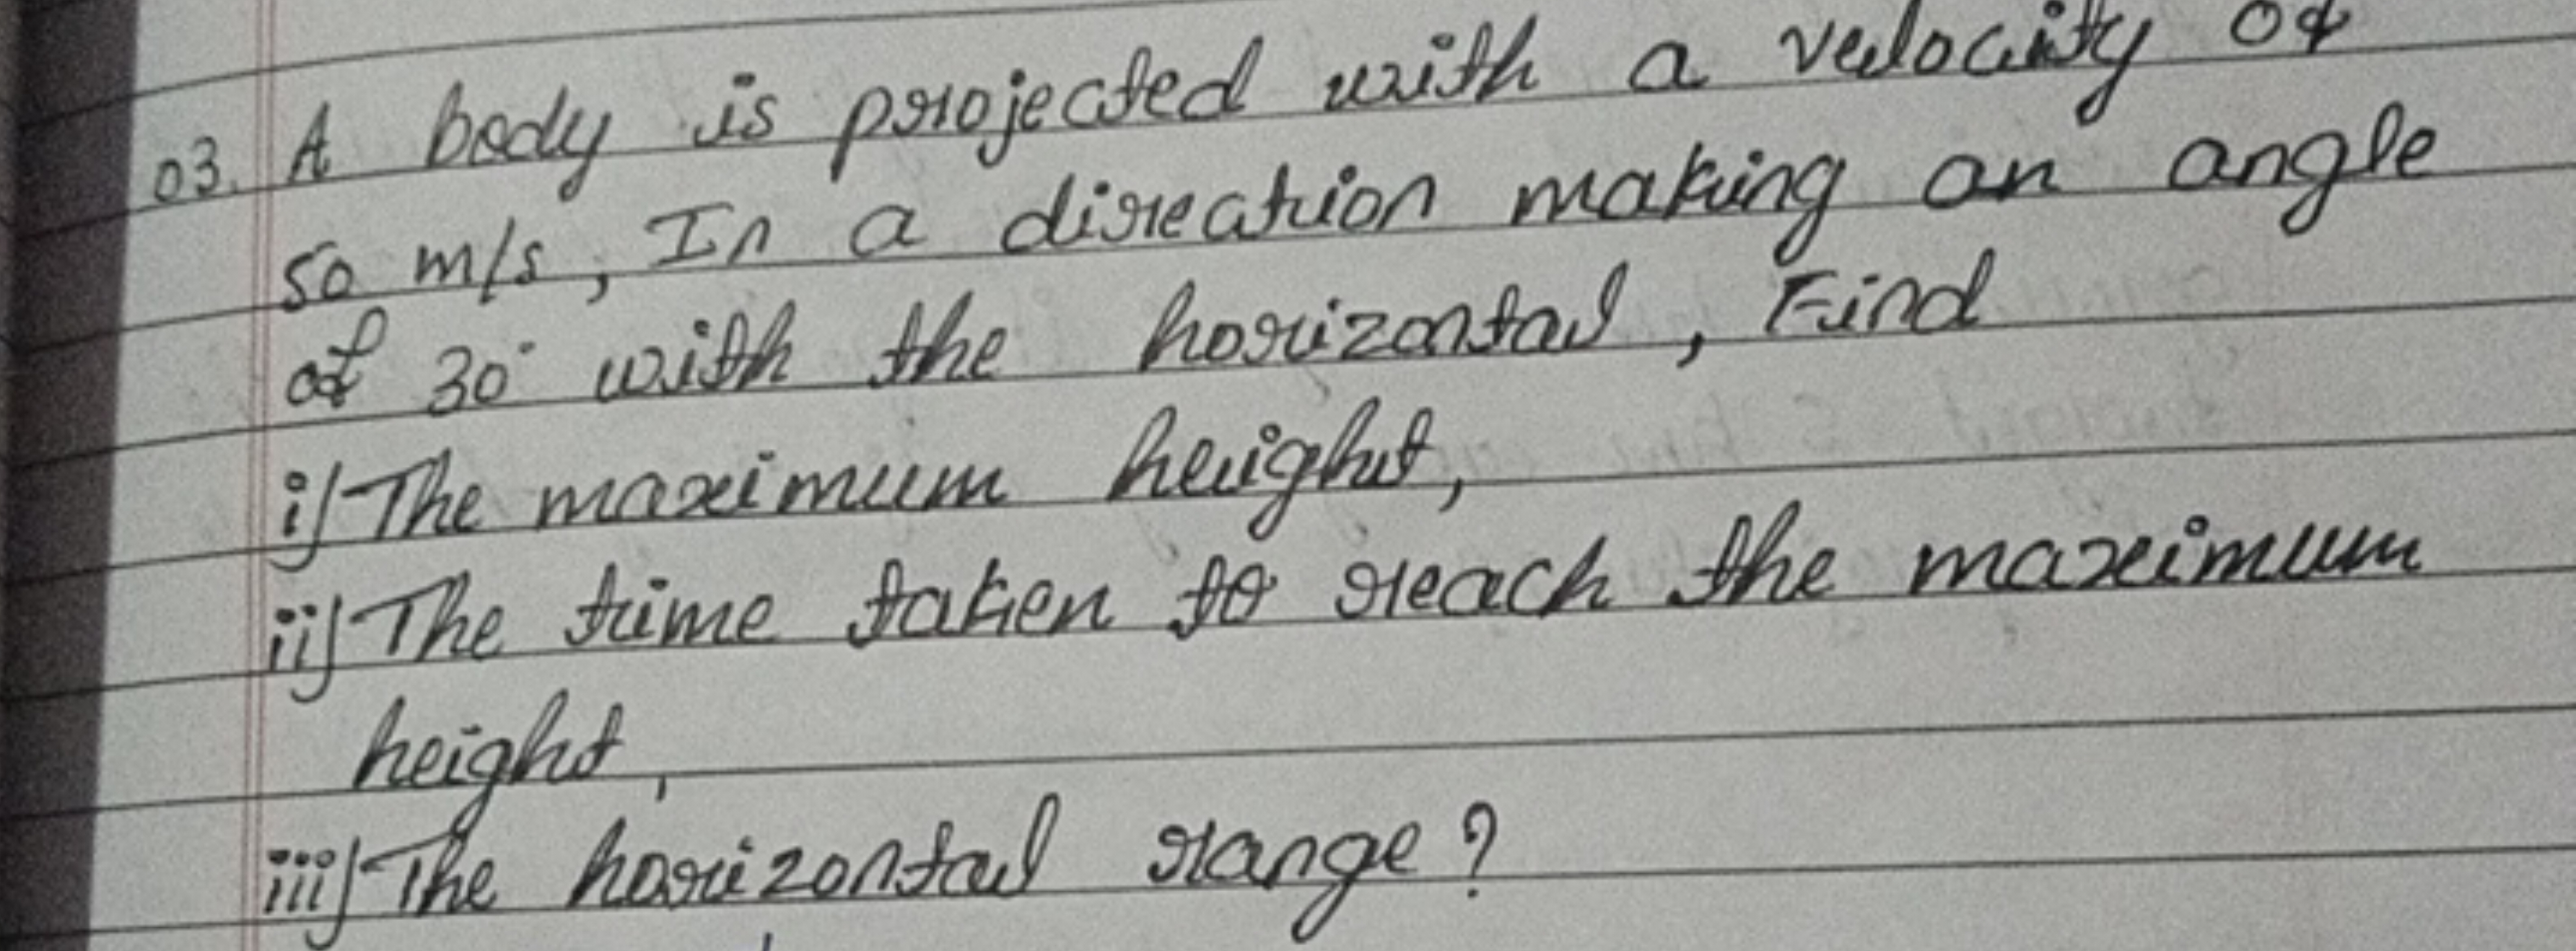 03. A body is projected with a velocity of
50 m/s, In a direction making an angle
of 30° with the horizontal, Find
i) The maximum height,
ii) The time taken to reach the maximum
height,
iii) The horizontal range?